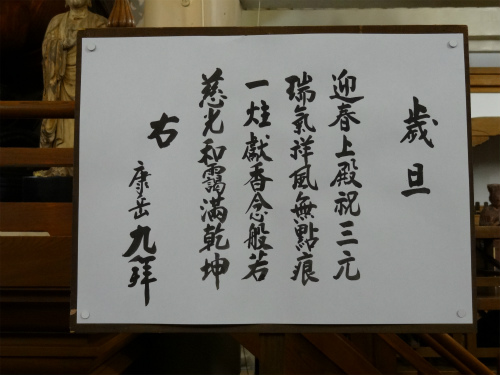 歲旦
迎春上殿祝三元
瑞氣祥風無點痕
一炷獻香念般若
慈光和靄滿乾坤
右
康岳九拜